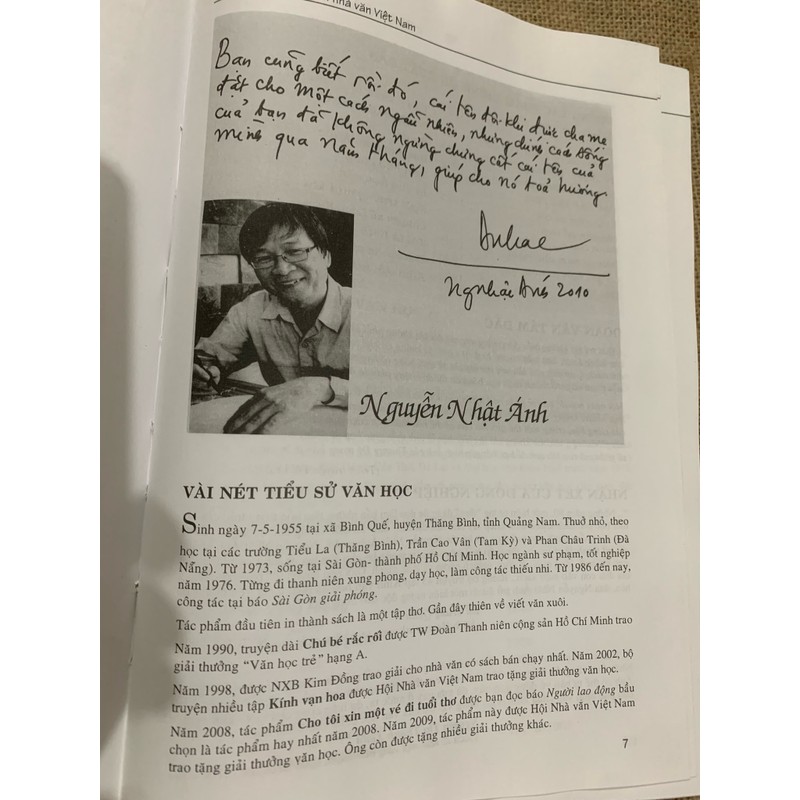 nhà văn Việt Nam
Bạn cũng biết rồi đó, cái tên đôi khi được cha mẹ
đặt cho một cách ngẫu nhiên, nhưng chính cách sống
của bạn đã không ngừng chưng cất cái tên của
mình qua năm tháng, giúp cho nó toả hương
Ng Nhật Ánh 2010
Nguyễn Nhật Ánh
VÀI NÉT TIỂU SỬ VĂN HỌC
Sinh ngày 7-5-1955 tại xã Bình Quế, huyện Thăng Bình, tỉnh Quảng Nam. Thuở nhỏ, theo
học tại các trường Tiểu La (Thăng Bình), Trần Cao Vân (Tam Kỳ) và Phan Châu Trinh (Đà
Nẵng). Từ 1973, sống tại Sài Gòn- thành phố Hồ Chí Minh. Học ngành sư phạm, tốt nghiệp
năm 1976. Từng đi thanh niên xung phong, dạy học, làm công tác thiếu nhi. Từ 1986 đến nay,
công tác tại báo Sài Gòn giải phóng.
Tác phẩm đầu tiên in thành sách là một tập thơ. Gần đây thiên về viết văn xuôi.
Năm 1990, truyện dài Chú bé rắc rối được TW Đoàn Thanh niên cộng sản Hồ Chí Minh trao
giải thưởng “Văn học trẻ” hạng A.
Năm 1998, được NXB Kim Đồng trao giải cho nhà văn có sách bán chạy nhất. Năm 2002, bộ
truyện nhiều tập Kính vạn hoa được Hội Nhà văn Việt Nam trao tặng giải thưởng văn học.
Năm 2008, tác phẩm Cho tôi xin một vé đi tuổi thơ được bạn đọc báo Người lao động bầu
chọn là tác phẩm hay nhất năm 2008. Năm 2009, tác phẩm này được Hội Nhà văn Việt Nam
trao tặng giải thưởng văn học. Ông còn được tặng nhiều giải thưởng khác.
7